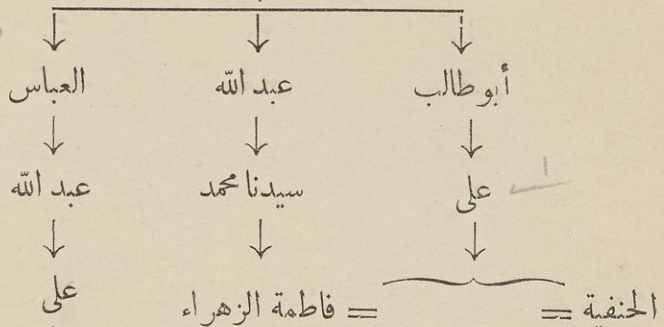 أبو طالب عبد الله العباس
على سيدنا محمد عبد الله
على
الحنفية = = فاطمة الزهراء